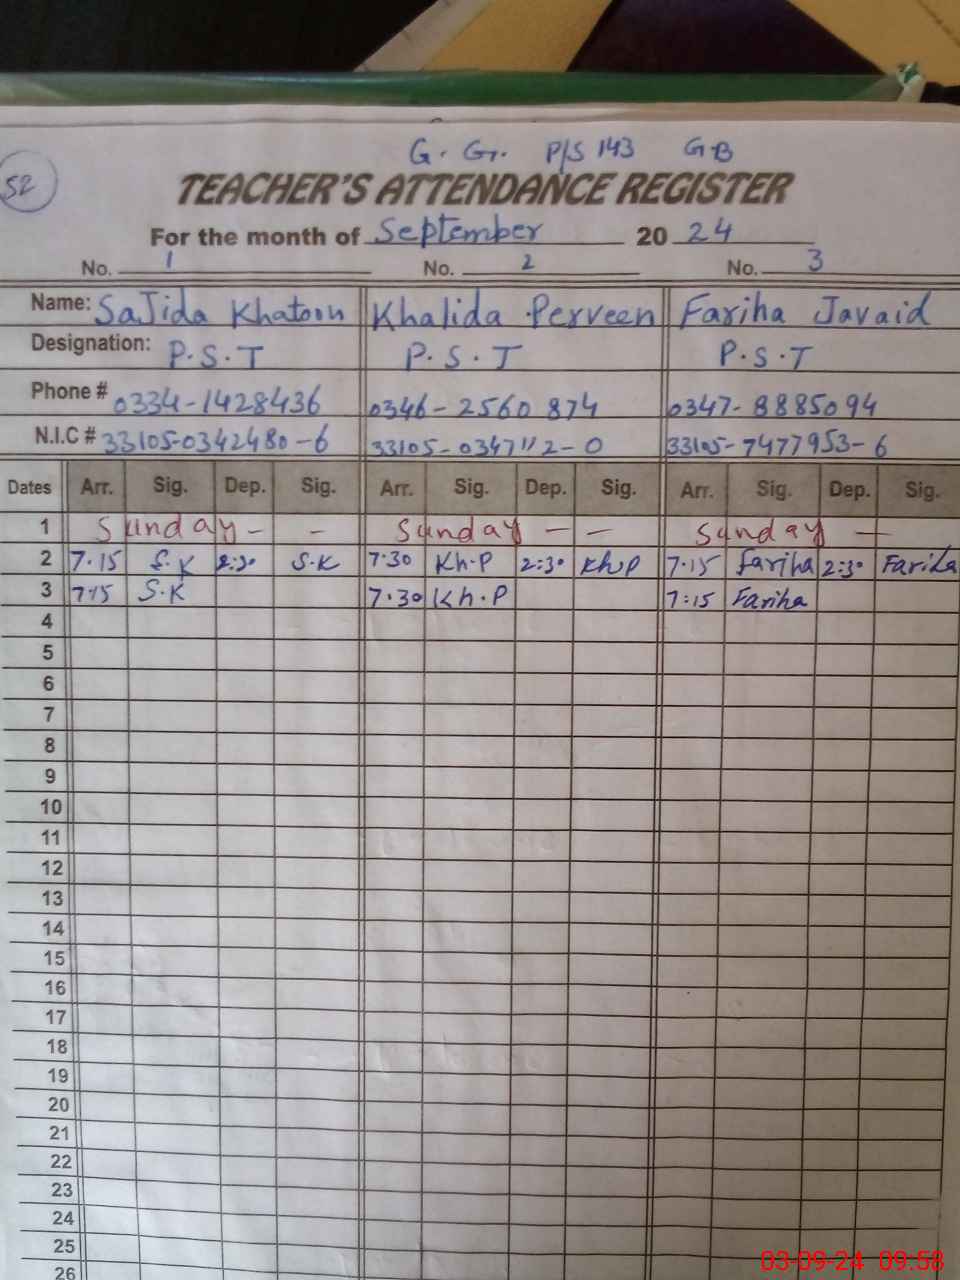 G. G. P/S 143 GB
52
TEACHER'S ATTENDANCE REGISTER
For the month of September 2024
No. 1 No. 2 No. 3
Name: Sajida Khatoon Khalida Perveen Fariha Javaid
Designation: P.S.T P.S.T P.S.T
Phone # 0334-1428436 0346-2560874 0347-8885094
N.I.C # 33105-0342480-6 33105-0347112-0 33105-7477953-6
Dates Arr. Sig. Dep. Sig. Arr. Sig. Dep. Sig. Arr. Sig. Dep. Sig.
1 Sunday - - Sunday - - Sunday -
2 7.15 S.K 2:30 S.K 7.30 Kh.P 2:30 Kh.P 7.15 Fariha 2:30 Fariha
3 7:15 S.K 7.30 Kh.P 7:15 Fariha
4
5
6
7
8
9
10
11
12
13
14
15
16
17
18
19
20
21
22
23
24
25
26
03-09-24 09:58